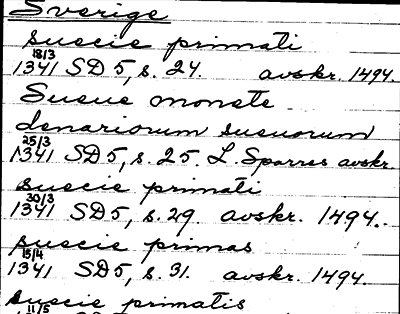 Sverige
suecie primati
18/3
1341 SD 5, s. 24. avskr. 1494.
Sueue monete
denariorum sueuorum
25/3
1341 SD 5, s. 25. L. Sparres avskr.
suecie primati
30/3
1341 SD 5, s. 29. avskr. 1494.
suecie primas
15/4
1341 SD 5, s. 31. avskr. 1494.
suecie primatis
11/5